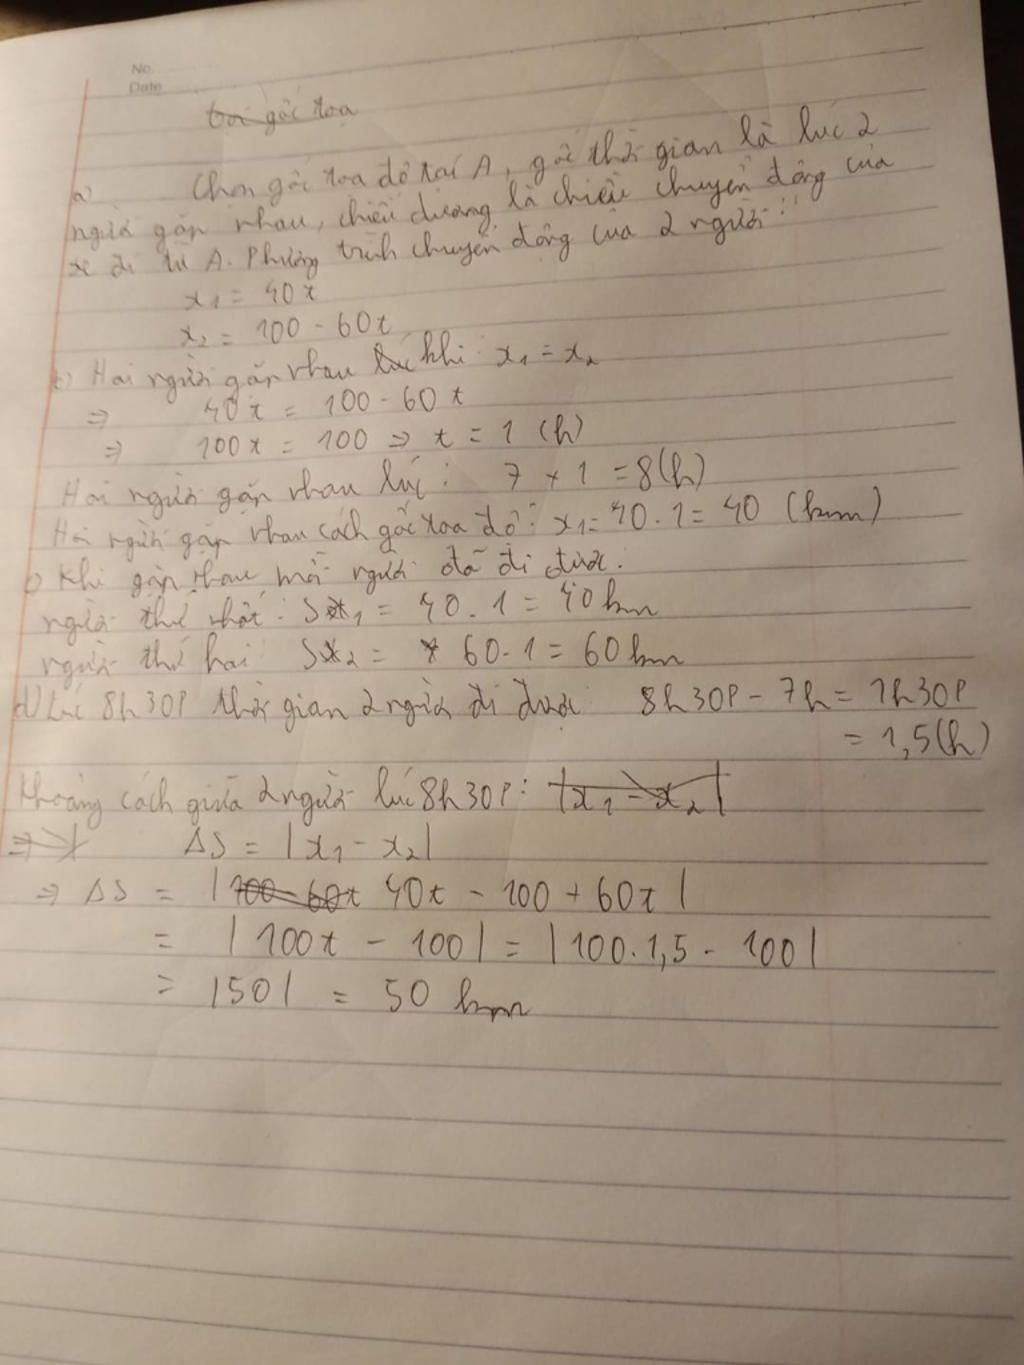 No.
Date
gốc tọa
a) Chọn gốc tọa độ tại A, gốc thời gian là lúc 2
người gặp nhau, chiều dương là chiều chuyển động của
xe đi từ A. Phương trình chuyển động của 2 người:
x₁ = 40t
x₂ = 100 - 60t
Hai người gặp nhau khi x₁ = x₂
⇒ 40t = 100 - 60t
⇒ 100t = 100 ⇒ t = 1 (h)
Hai người gặp nhau lúc: 7 + 1 = 8(h)
Hai người gặp nhau cách gốc tọa độ: x₁ = 40.1 = 40 (km)
) Khi gặp nhau mỗi người đã đi được.
người thứ nhất: S₁ = 40.1 = 40km
người thứ hai: S₂ = 60.1 = 60km
d) Lúc 8h30P thời gian 2 người đi được: 8h30P - 7h = 1h30P
= 1,5(h)
Khoảng cách giữa 2 người lúc 8h30P: |x₁ - x₂|
⇒ ΔS = |x₁ - x₂|
⇒ ΔS = |100 - 60t 40t - 100 + 60t|
= |100t - 100| = |100.1,5 - 100|
= |50| = 50 km